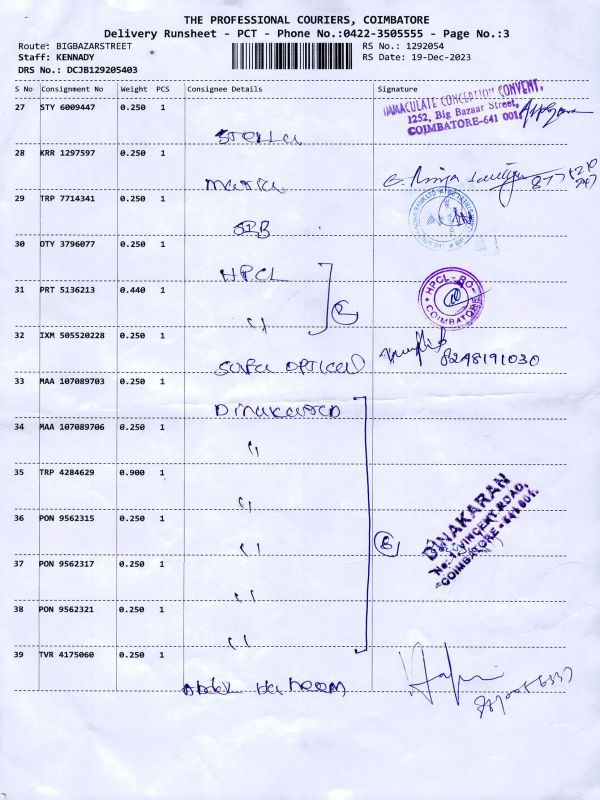 THE PROFESSIONAL COURIERS, COIMBATORE
Delivery Runsheet - PCT - Phone No.:0422-3505555 - Page No.:3
Route: BIGBAZARSTREET RS No.: 1292054
Staff: KENNADY RS Date: 19-Dec-2023
DRS No.: DCJB129205403
S No Consignment No Weight PCS Consignee Details Signature
27 STY 6009447 0.250 1
Stella
IMMACULATE CONCEPTION CONVENT,
1252, Big Bazaar Street,
COIMBATORE-641 001.
28 KRR 1297597 0.250 1
Maria
29 TRP 7714341 0.250 1
30 OTY 3796077 0.250 1
HPCL
31 PRT 5136213 0.440 1
"
2
HPCL-RO
COIMBATORE
32 IXM 505520228 0.250 1
Safa optical
8248191030
33 MAA 107089703 0.250 1
Dinakaran
34 MAA 107089706 0.250 1
"
35 TRP 4284629 0.900 1
"
36 PON 9562315 0.250 1
"
6
DINAKARAN
No:1, VINCENT ROAD,
COIMBATORE - 641 001.
37 PON 9562317 0.250 1
"
38 PON 9562321 0.250 1
"
39 TVR 4175060 0.250 1
Abdul Haleem